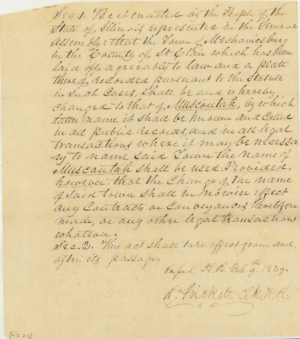 Sec 1. Be it enacted by the People of the
State of Illinois represented in the General
Assembly: that the Town of Mechanicsburg
in the County of St Clair which has been
laid off agreeably to law and a plate
thereof recorded pursuant to the Statute
in such Cases, shall be and is hereby
changed to that of Muscoutah, by which
latter name it shall be known and Called
in all public records, and in all legal
transactions where it may be necessa
ry to name said Town the name of
Muscoutah shall be used. Provided
however that the Change of the name
of said town shall in no wise effect
any Contracts or Conveyances heretofore
made, or any other legal transactions
whatever.
Sec. 2. This act shall take effect from and
after its passage
passed H.R. Feb. 9. 1839.
Prickett Clk. H. R.